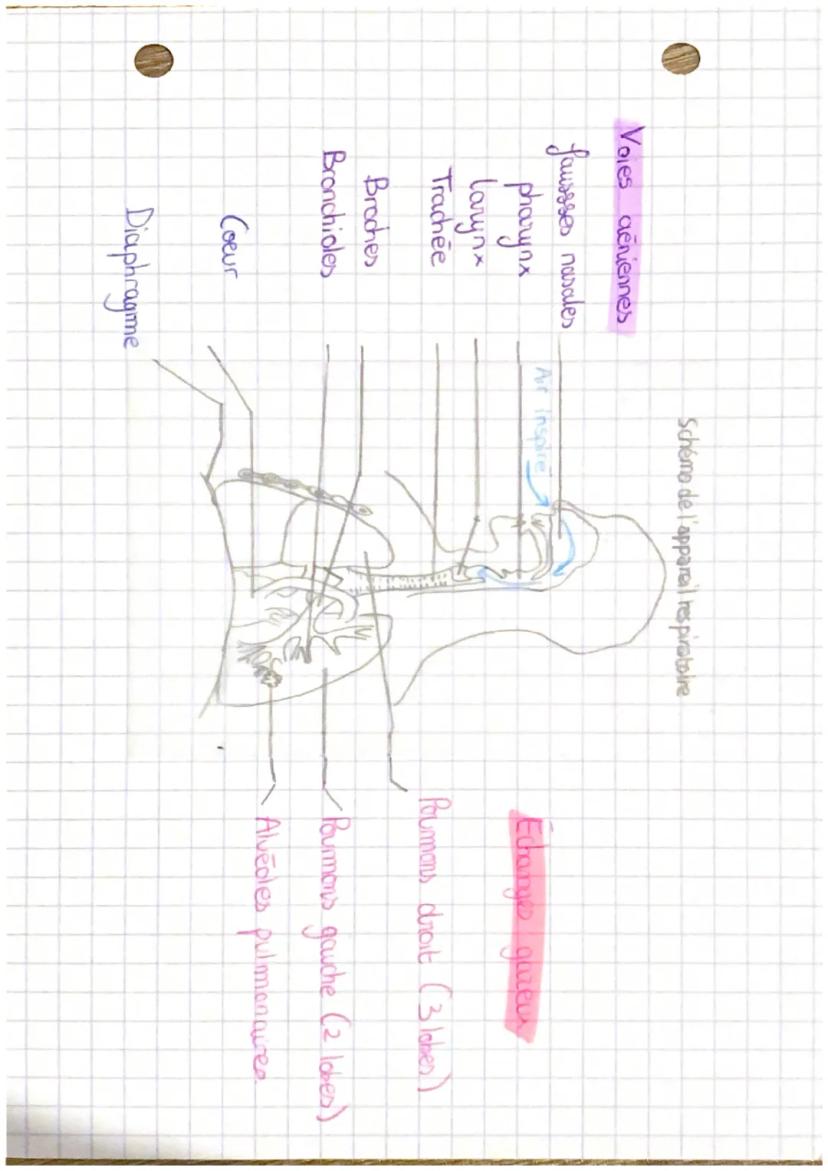 Schéma de l'appareil respiratoire
Voies aériennes
fausses nasales
pharynx
larynx
Trachée
Broches
Bronchioles
Coeur
Diaphragme
Air inspiré
Echanges gazeux
Poumons droit (3 lobes)
Poumons gauche (2 lobes)
Alvéoles pulmonaires